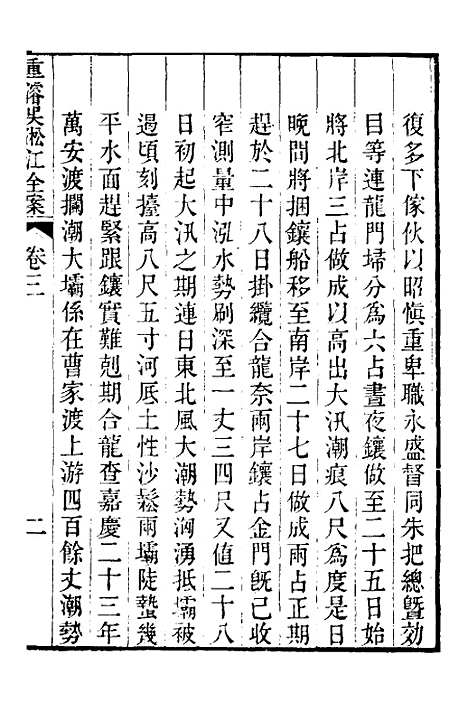 復多下傢伙以昭慎重卑職永盛督同朱把總曁効
目等連龍門埽分爲六占晝夜鑲做至二十五日始
將北岸三占做成以高出大汛潮痕八尺爲度是日
晚間將捆鑲船移至南岸二十七日做成兩占正期
趕於二十八日掛纜合龍奈兩岸鑲占金門旣已收
窄測量中泓水勢刷深至一丈三四尺又値二十八
日初起大汛之期連日東北風大潮勢洶湧抵壩被
遏頃刻擡高八尺五寸河底土性沙鬆兩壩陡蟄幾
平水面趕緊跟鑲實難剋期合龍查嘉慶二十三年
萬安渡攔潮大壩係在曹家渡上游四百餘丈潮勢
重濬吳淞江全案
卷三
二